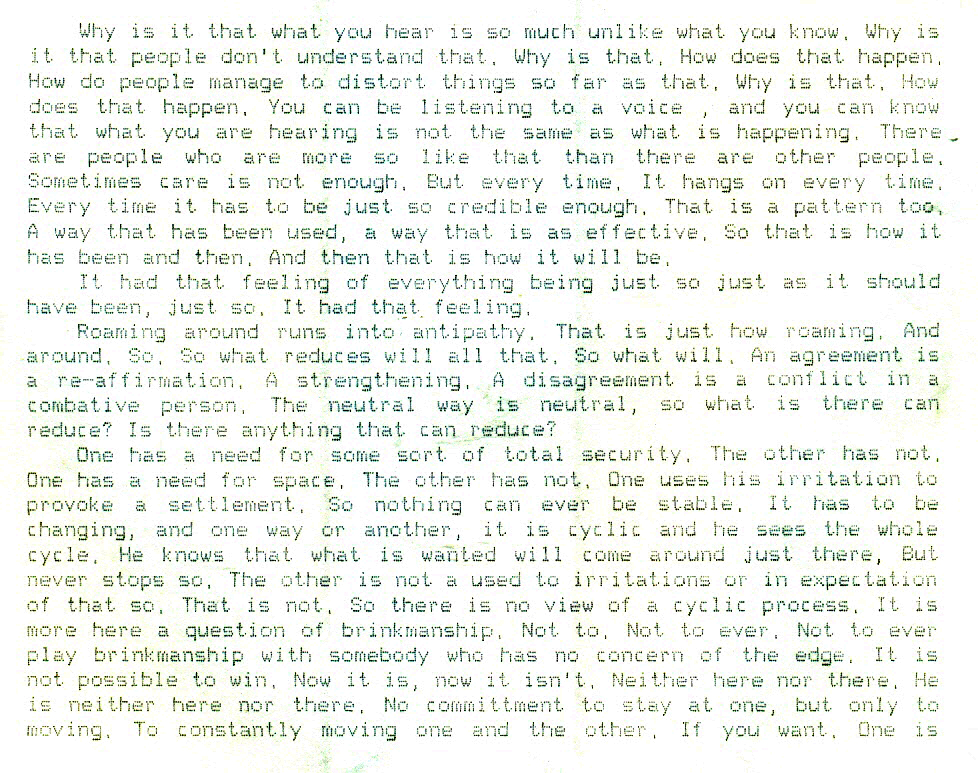 Why is it that what you hear is so much unlike what you know. Why is
it that people don't understand that. Why is that. How does that happen.
How do people manage to distort things so far as that. Why is that. How
does that happen. You can be listening to a voice , and you can know
that what you are hearing is not the same as what is happening. There
are people who are more so like that than there are other people.
Sometimes care is not enough. But every time. It hangs on every time.
Every time it has to be just so credible enough. That is a pattern too.
A way that has been used, a way that is as effective. So that is how it
has been and then. And then that is how it will be.
It had that feeling of everything being just so just as it should
have been, just so. It had that feeling.
Roaming around runs into antipathy. That is just how roaming. And
around. So. So what reduces will all that. So what will. An agreement is
a re-affirmation. A strengthening. A disagreement is a conflict in a
combative person. The neutral way is neutral, so what is there can
reduce? Is there anything that can reduce?
One has a need for some sort of total security. The other has not.
One has a need for space. The other has not. One uses his irritation to
provoke a settlement. So nothing can ever be stable. It has to be
changing, and one way or another, it is cyclic and he sees the whole
cycle. He knows that what is wanted will come around just there, But
never stops so. The other is not a used to irritations or in expectation
of that so. That is not. So there is no view of a cyclic process. It is
more here a question of brinkmanship. Not to. Not to ever. Not to ever
play brinkmanship with somebody who has no concern of the edge. It is
not possible to win. Now it is, now it isn't. Neither here nor there. He
is neither here nor there. No committment to stay at one, but only to
moving. To constantly moving one and the other. If you want. One is